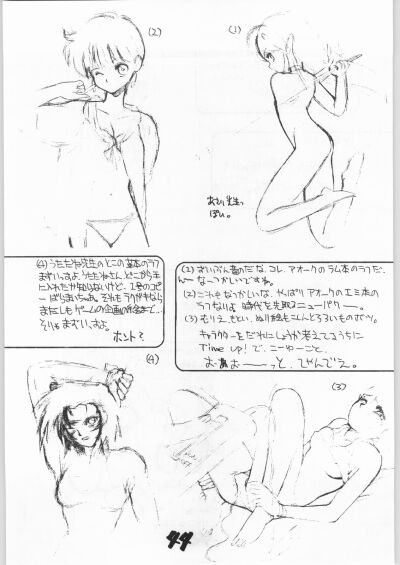 (2)
(1)
あさり先生っ
ぽい。
(4) うたたね先生のとこの基本のラフ
まずいっすよ、うたたねさん、どこから手
に入れたか知りないけど、1号のコピ
ーばらまいちゃよ。それもラクガキなら
まだしもゲームの企画の
そりゃまずいっすよ。
ホント?
(1) ずいぶん昔のだな、コレ、アオークのラム本のラフだ、
んーなつかしいですねぇ。
(2) これもなつかしいな、やっぱりアオークのエミ本の
ラフなりよ 時代を先取るニューパワー。
(3) むりえ、きとい、ぬり絵もこんとろろいものボツ。
キャラクターをだれにしようか考えてるうちに
Time up! で、こーゆーこと、
おぉーっと、しゃんでえ。
(4)
(3)
44